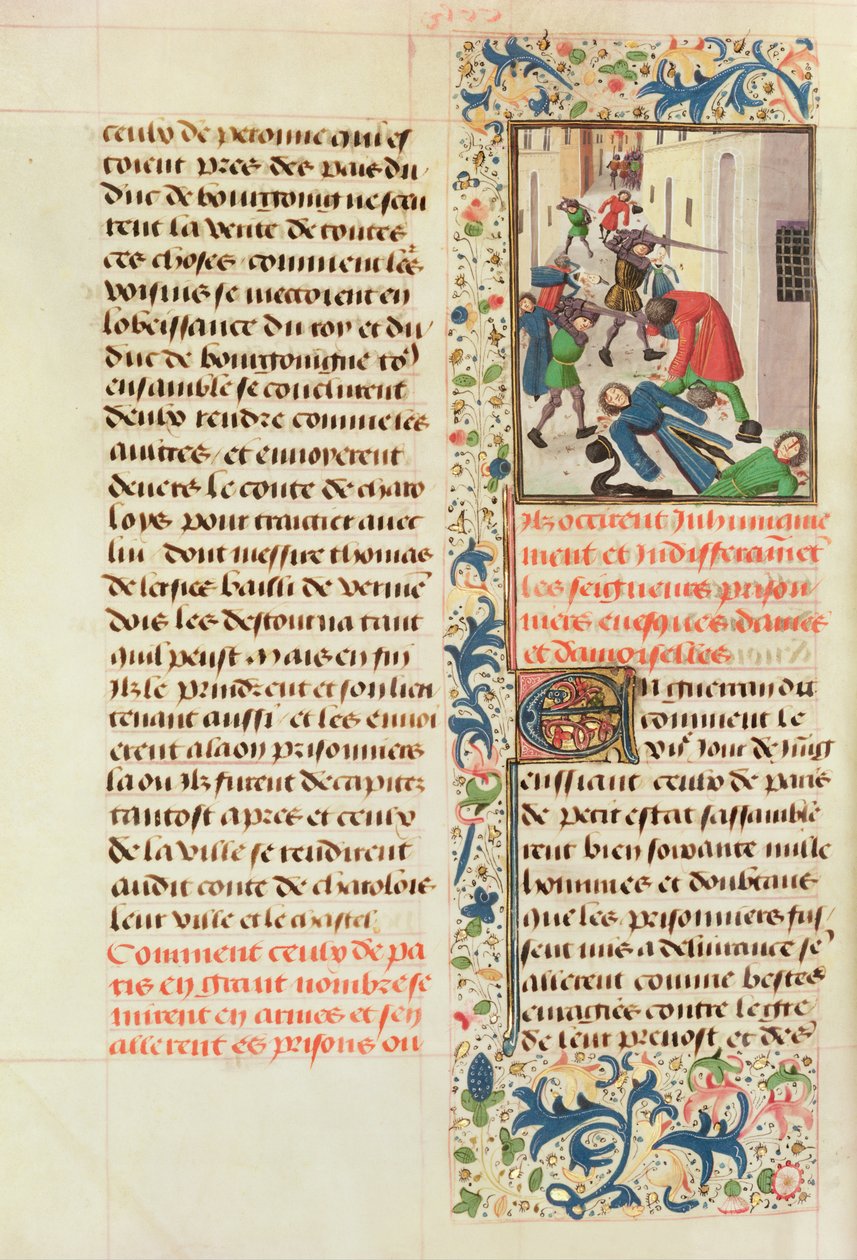 ceulx de peronne qui es
toient pres des pais du
duc de bourgoingne sceu
rent la verite de toutes
ces choses comment les
voisins se mectoient en
lobeissance du roy et du
duc de bourgoingne to9
ensamble se conclurent
deulx rendre comme les
aultres / et envoyerent
devers le conte de charo
loys pour traictier avec
lui / dont messire thomas
de lersies bailli de verme
dois les destourna tant
quil peust Mais en fin
Ilz le prindrent et son lieu
tenant aussi / et les envoi
erent a laon prisonniers
la ou Ilz furent decapitez
tantost apres et ceulx
de la ville se rendirent
audit conte de charolois
leur ville et le chastel
Comment ceulx de pa
ris en grant nombre se
mirent en armes et sen
allerent es prisons ou
Ilz occirent Inhumaine
ment et Indifferamet
les seigneurs prison
niers evesques dames
et damoiselles
Enguerran dit
comment le
Jour de
enssiant ceulx de paris
de petit estat sassamble
rent bien soixante mille
hommes et doubtans
que les prisonniers fus/
sent mis a delivrance se
allerent comme bestes
enragies contre le gre
de leur prevost et des